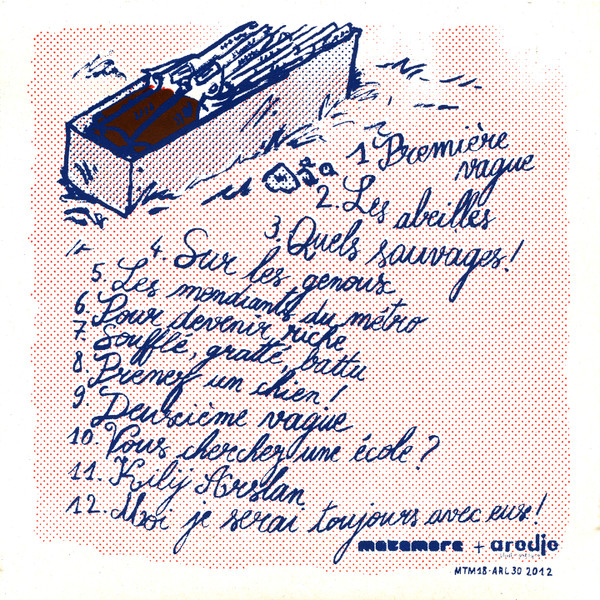 1 Première
vague
2. Les abeilles
3. Quels sauvages!
4. Sur les genoux
5. Les mendiants du métro
6. Pour devenir riche
7. Soufflé, gratté, battu
8. Prenez un chien!
9. Deuxième vague
10. Vous cherchez une école?
11. Kilij Arslan
12. Moi je serai toujours avec eux!
matamore + arodje
MTM18-ARL30 2012